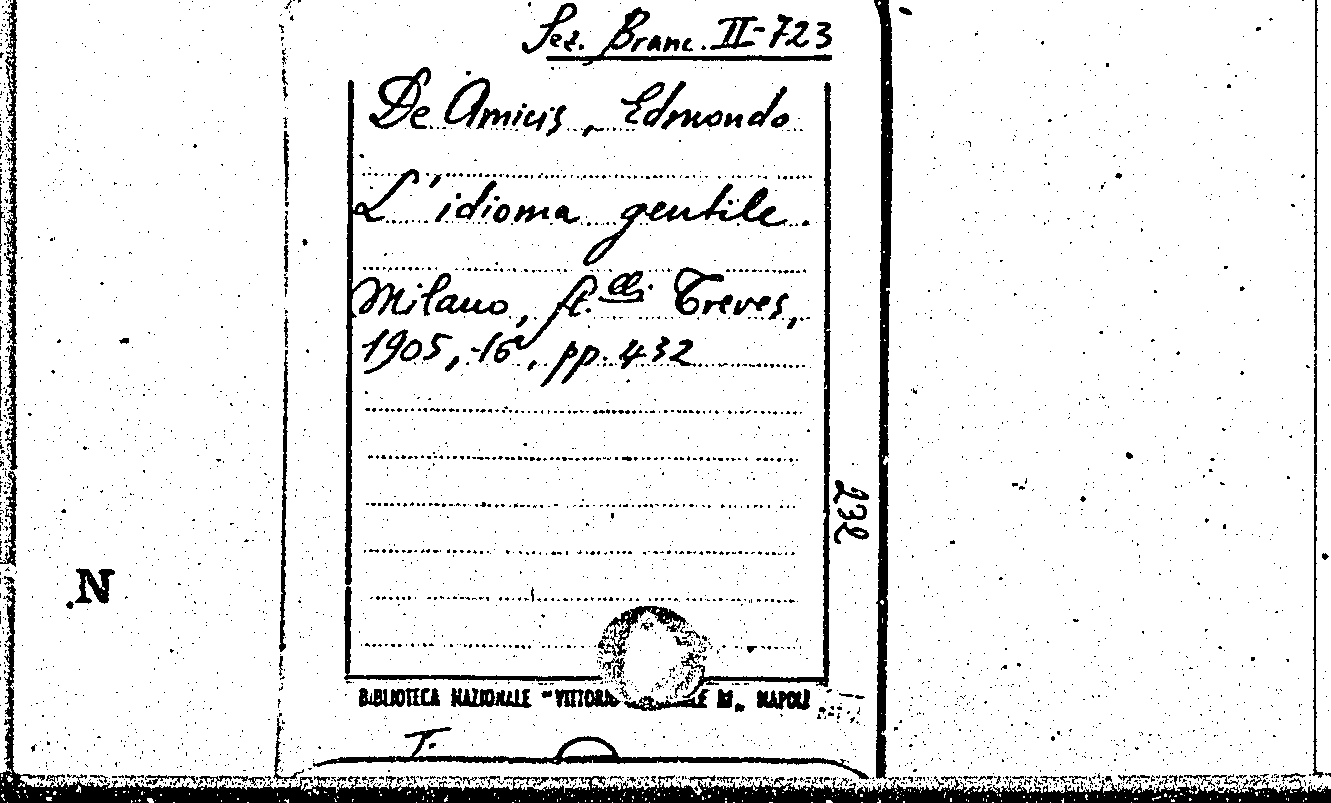 Sez. Branc. II-723
De Amicis, Edmondo
L'idioma gentile.
Milano, fr.lli Treves,
1905, -16°, pp. 432
232
N
BIBLIOTECA NAZIONALE "VITTORIO LE III„ NAPOLI
T.